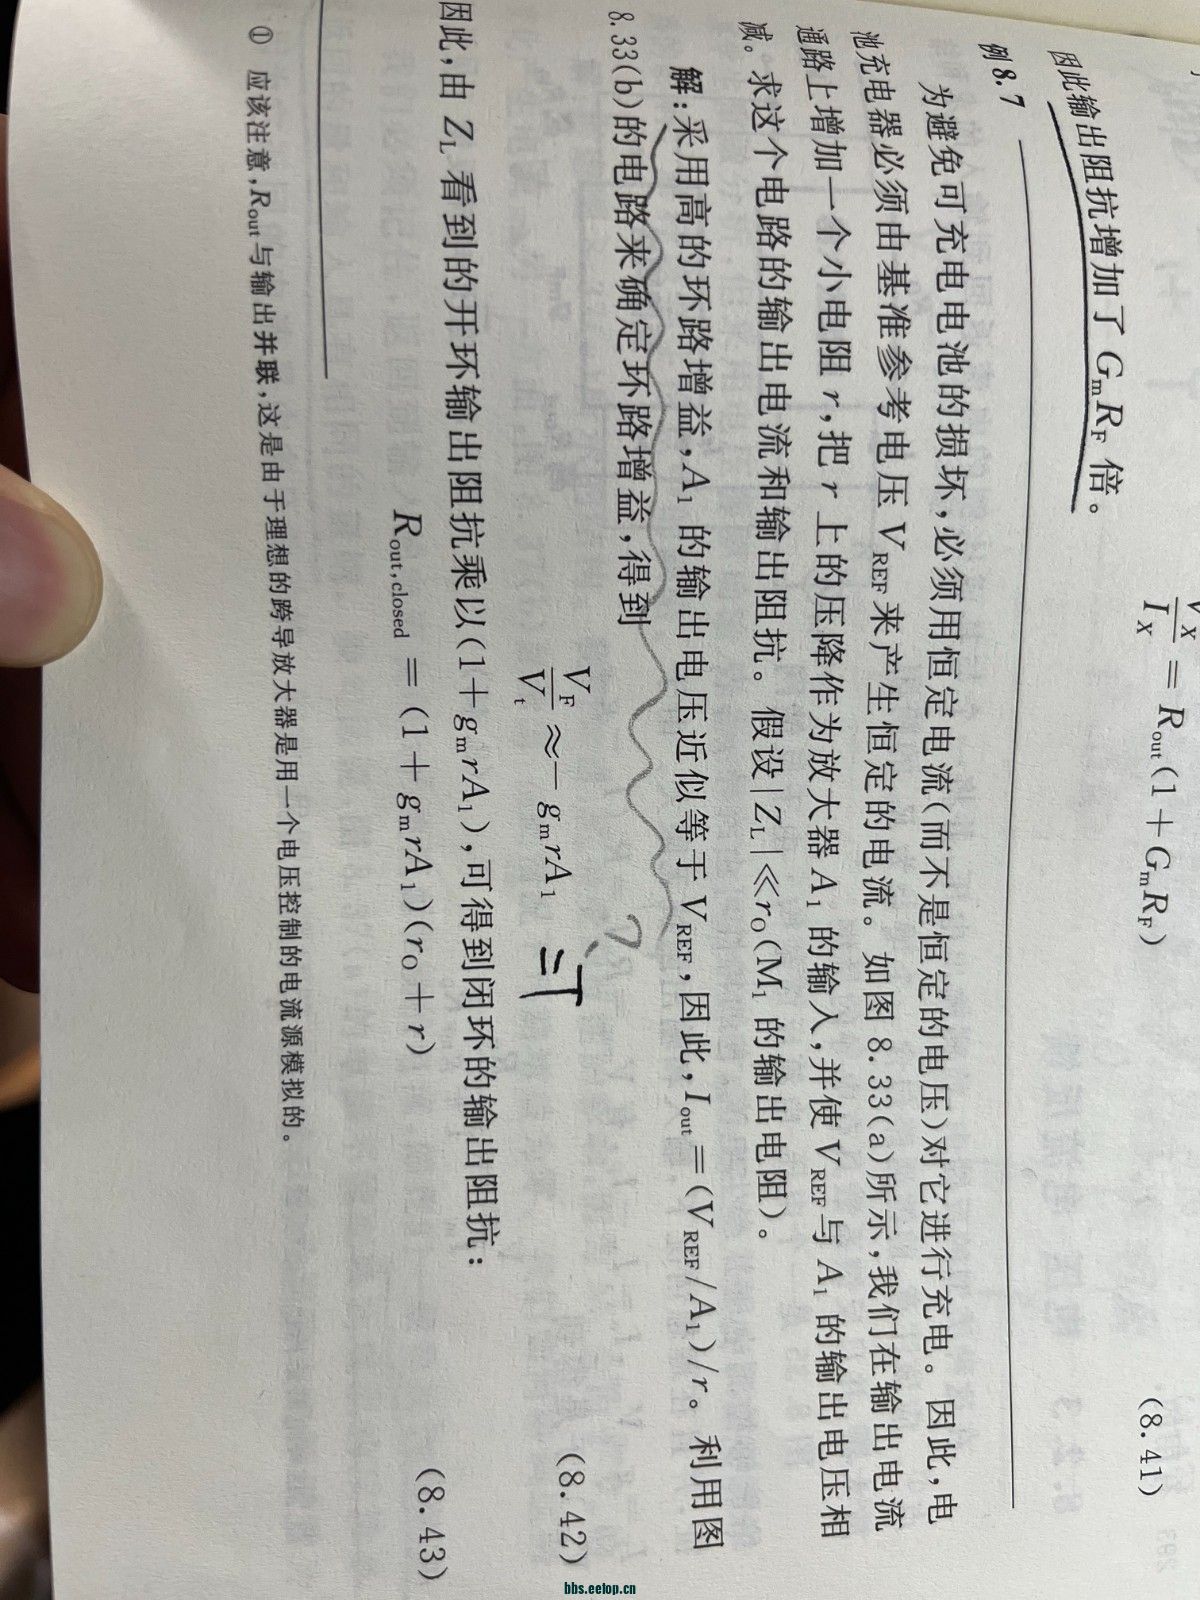 V_X/I_X = R_out(1+G_mR_F) (8.41)
因此输出阻抗增加了 G_mR_F 倍。
例 8.7
为避免可充电电池的损坏,必须用恒定电流(而不是恒定的电压)对它进行充电。因此,电
池充电器必须由基准参考电压 V_REF 来产生恒定的电流。如图 8.33(a)所示,我们在输出电流
通路上增加一个小电阻 r,把 r 上的压降作为放大器 A_1 的输入,并使 V_REF 与 A_1 的输出电压相
减。求这个电路的输出电流和输出阻抗。假设|Z_L|≪r_O(M_1 的输出电阻)。
解:采用高的环路增益,A_1 的输出电压近似等于 V_REF,因此,I_out=(V_REF/A_1)/r。利用图
8.33(b)的电路来确定环路增益,得到
V_F/V_t ≈ −g_mrA_1 (8.42)
因此,由 Z_L 看到的开环输出阻抗乘以(1+g_mrA_1),可得到闭环的输出阻抗:
R_out,closed = (1+g_mrA_1)(r_O+r) (8.43)
① 应该注意,R_out与输出并联,这是由于理想的跨导放大器是用一个电压控制的电流源模拟的。
bbs.eetop.cn